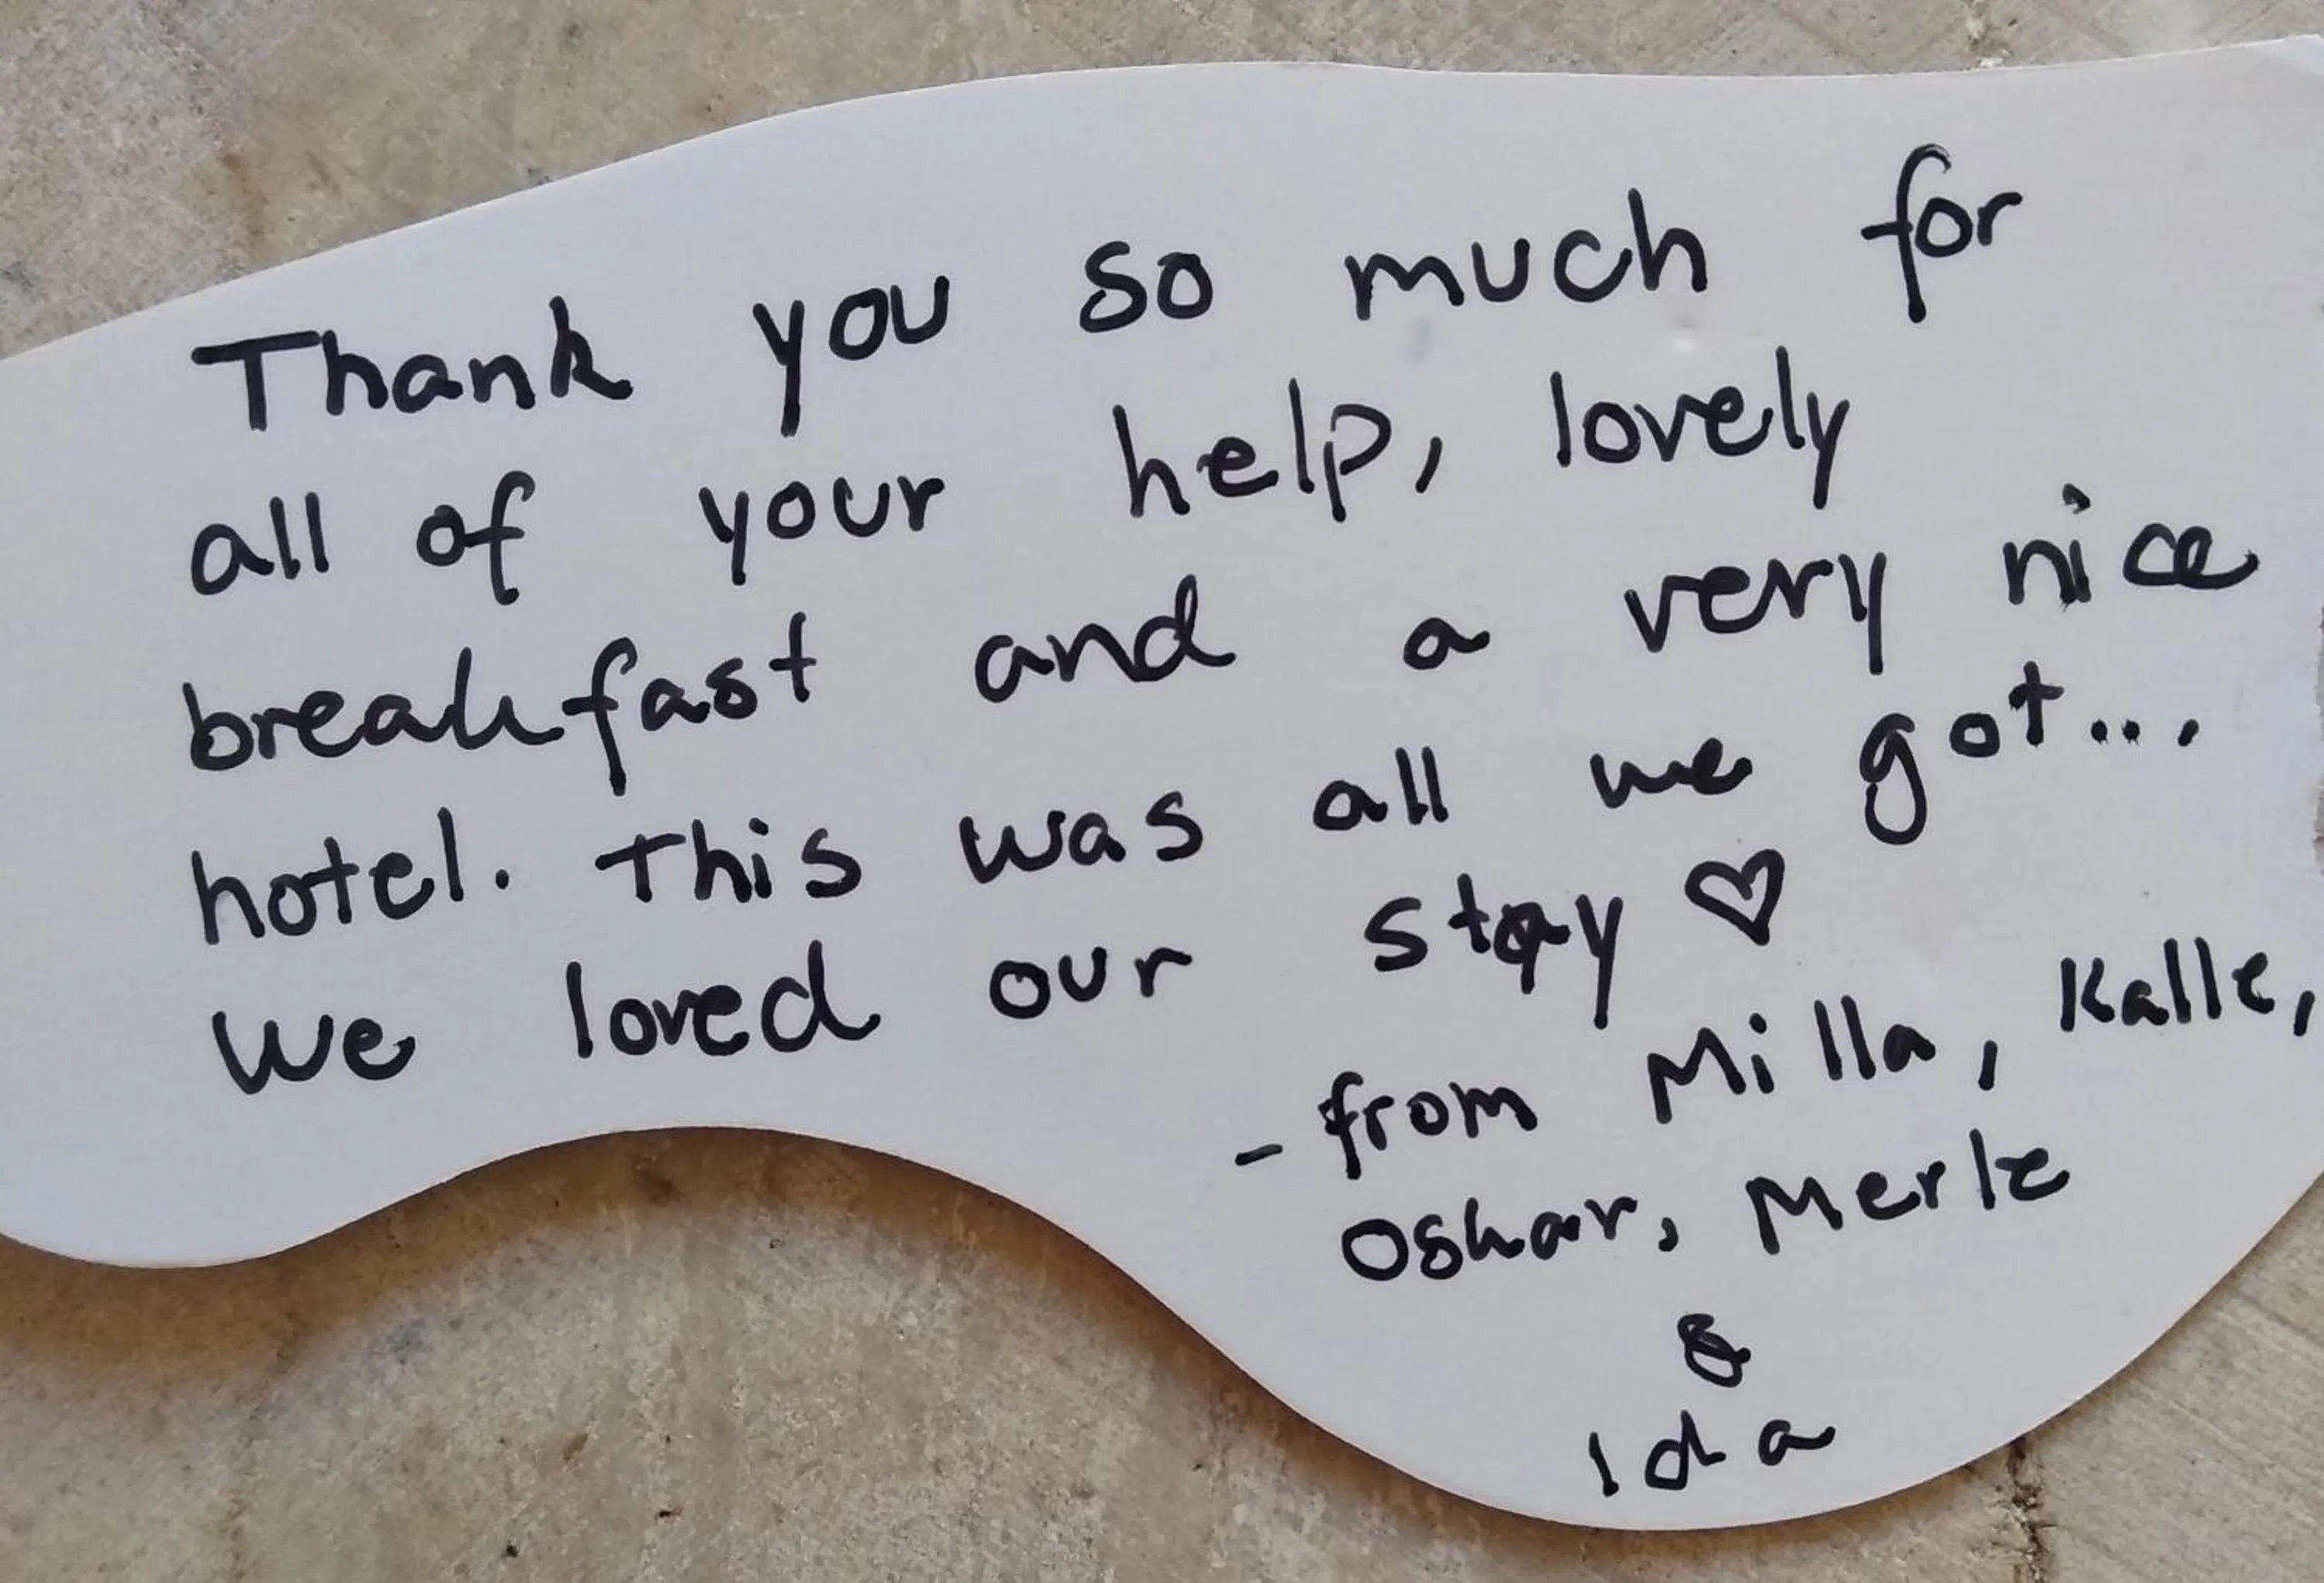 Thank you so much for
all of your help, lovely
breakfast and a very nice
hotel. This was all we got...
We loved our stay ♡
- from Milla, Kalle,
Oskar, Merle
&
Ida